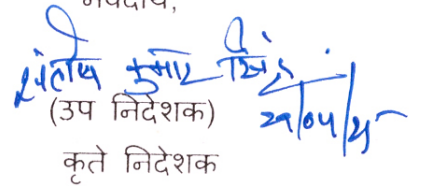 भवदीय,
संतोष कुमार सिंह
(उप निदेशक)
कृते निदेशक